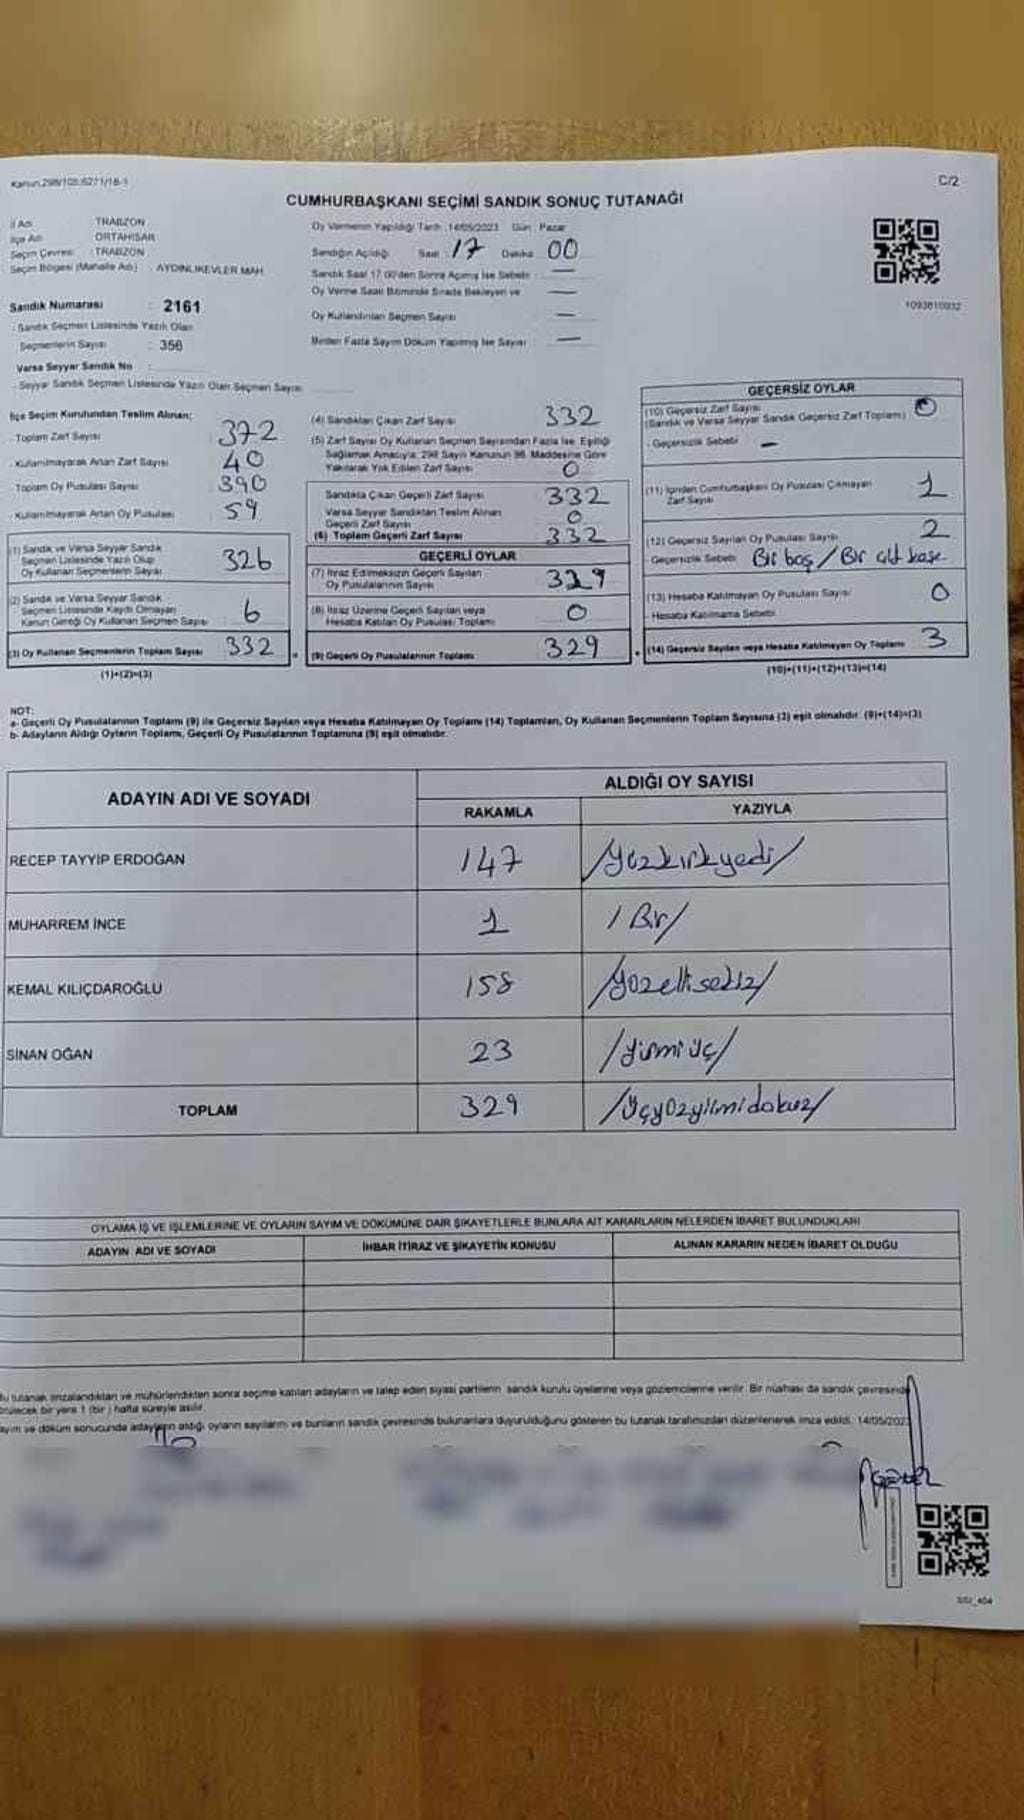 Kanun:298/105,6271/18-1
C/2
CUMHURBAŞKANI SEÇİMİ SANDIK SONUÇ TUTANAĞI
İl Adı : TRABZON
İlçe Adı : ORTAHİSAR
Seçim Çevresi : TRABZON
Seçim Bölgesi (Mahalle Adı) : AYDINLIKEVLER MAH.
Sandık Numarası : 2161
- Sandık Seçmen Listesinde Yazılı Olan
Seçmenlerin Sayısı : 356
Varsa Seyyar Sandık No :
- Seyyar Sandık Seçmen Listesinde Yazılı Olan Seçmen Sayısı
Oy Vermenin Yapıldığı Tarih : 14/05/2023 Gün : Pazar
Sandığın Açıldığı Saat : 17 Dakika 00
Sandık Saat 17.00'den Sonra Açılmış İse Sebebi : —
Oy Verme Saati Bitiminde Sırada Bekleyen ve —
Oy Kullandırılan Seçmen Sayısı —
Birden Fazla Sayım Döküm Yapılmış İse Sayısı : —
1093610932
İlçe Seçim Kurulundan Teslim Alınan;
- Toplam Zarf Sayısı : 372
- Kullanılmayarak Artan Zarf Sayısı : 40
- Toplam Oy Pusulası Sayısı : 390
- Kullanılmayarak Artan Oy Pusulası : 59
(1) Sandık ve Varsa Seyyar Sandık
Seçmen Listesinde Yazılı Olup
Oy Kullanan Seçmenlerin Sayısı 326
(2) Sandık ve Varsa Seyyar Sandık
Seçmen Listesinde Kayıtlı Olmayan
Kanun Gereği Oy Kullanan Seçmen Sayısı 6
(3) Oy Kullanan Seçmenlerin Toplam Sayısı 332
(1)+(2)=(3)
(4) Sandıktan Çıkan Zarf Sayısı : 332
(5) Zarf Sayısı Oy Kullanan Seçmen Sayısından Fazla İse, Eşitliği
Sağlamak Amacıyla; 298 Sayılı Kanunun 98. Maddesine Göre
Yakılarak Yok Edilen Zarf Sayısı : 0
Sandıkta Çıkan Geçerli Zarf Sayısı 332
Varsa Seyyar Sandıktan Teslim Alınan
Geçerli Zarf Sayısı 0
(6) Toplam Geçerli Zarf Sayısı 332
GEÇERLİ OYLAR
(7) İtiraz Edilmeksizin Geçerli Sayılan
Oy Pusulalarının Sayısı 329
(8) İtiraz Üzerine Geçerli Sayılan veya
Hesaba Katılan Oy Pusulası Toplamı 0
(9) Geçerli Oy Pusulalarının Toplamı 329
GEÇERSİZ OYLAR
(10) Geçersiz Zarf Sayısı 0
(Sandık ve Varsa Seyyar Sandık Geçersiz Zarf Toplamı)
- Geçersizlik Sebebi : —
(11) İçinden Cumhurbaşkanı Oy Pusulası Çıkmayan
Zarf Sayısı 1
(12) Geçersiz Sayılan Oy Pusulası Sayısı 2
Geçersizlik Sebebi : Bir boş / Bir çift kaşe
(13) Hesaba Katılmayan Oy Pusulası Sayısı 0
- Hesaba Katılmama Sebebi :
(14) Geçersiz Sayılan veya Hesaba Katılmayan Oy Toplamı 3
(10)+(11)+(12)+(13)=(14)
NOT:
a- Geçerli Oy Pusulalarının Toplamı (9) ile Geçersiz Sayılan veya Hesaba Katılmayan Oy Toplamı (14) Toplamları, Oy Kullanan Seçmenlerin Toplam Sayısına (3) eşit olmalıdır. (9)+(14)=(3)
b- Adayların Aldığı Oyların Toplamı, Geçerli Oy Pusulalarının Toplamına (9) eşit olmalıdır.
ADAYIN ADI VE SOYADI
ALDIĞI OY SAYISI
RAKAMLA
YAZIYLA
RECEP TAYYİP ERDOĞAN 147 /yüzkırkyedi/
MUHARREM İNCE 1 /Bir/
KEMAL KILIÇDAROĞLU 158 /yüzellisekiz/
SİNAN OĞAN 23 /yirmiüç/
TOPLAM 329 /üçyüzyirmidokuz/
OYLAMA İŞ VE İŞLEMLERİNE VE OYLARIN SAYIM VE DÖKÜMÜNE DAİR ŞİKAYETLERLE BUNLARA AİT KARARLARIN NELERDEN İBARET BULUNDUKLARI
ADAYIN ADI VE SOYADI
İHBAR İTİRAZ VE ŞİKAYETİN KONUSU
ALINAN KARARIN NEDEN İBARET OLDUĞU
Bu tutanak imzalandıktan ve mühürlendikten sonra seçime katılan adayların ve talep eden siyasi partilerin sandık kurulu üyelerine veya gözlemcilerine verilir. Bir nüshası da sandık çevresinde
bir yere 1 (bir) hafta süreyle asılır.
Sayım ve döküm sonucunda adayların aldığı oyların sayılarını ve bunların sandık çevresinde bulunanlara duyurulduğunu gösteren bu tutanak tarafımızdan düzenlenerek imza edildi. 14/05/2023